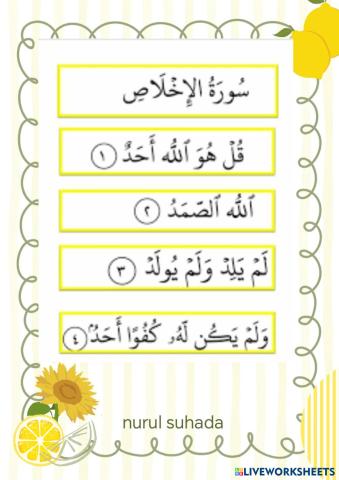 سُورَةُ الإِخْلَاصِ
قُلْ هُوَ ٱللَّهُ أَحَدٌ ١
ٱللَّهُ ٱلصَّمَدُ ٢
لَمْ يَلِدْ وَلَمْ يُولَدْ ٣
وَلَمْ يَكُن لَّهُۥ كُفُوًا أَحَدٌۢ ٤
nurul suhada
LIVEWORKSHEETS